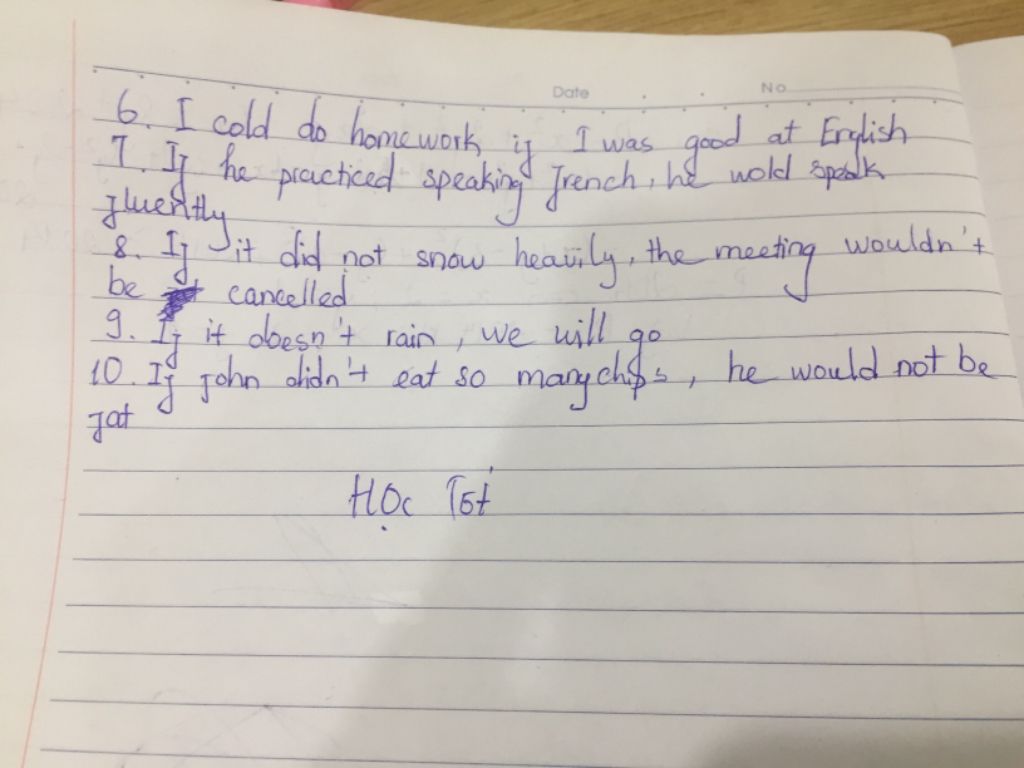 Date No
6. I cold do homework if I was good at English
7. If he practiced speaking French, he wold speak
fluently
8. If it did not snow heavily, the meeting wouldn't
be cancelled
9. If it doesn't rain, we will go
10. If john didn't eat so many chips, he would not be
fat
HỌc Tốt